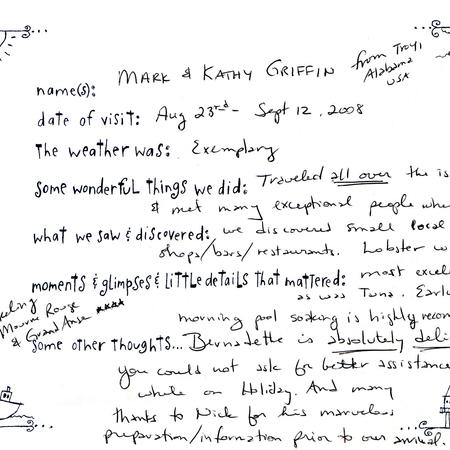 MARK & KATHY GRIFFIN from Troy,
Alabama
USA
name(s):
date of visit: Aug 23rd - Sept 12, 2008
The weather was: Exemplary
some wonderful things we did: Traveled all over the is
& met many exceptional people whe
what we saw & discovered: we discovered small local
shops/bars/restaurants. Lobster w
moments & glimpses & little details that mattered: most excel
as was Tuna. Early
morning pool soaking is highly recom
Mourne Rouge
& Grand Anse ****
some other thoughts... Bernadette is absolutely deli
You could not ask for better assistance
while on Holiday. And many
thanks to Nick for his marvelous
preparation/information prior to our arrival.